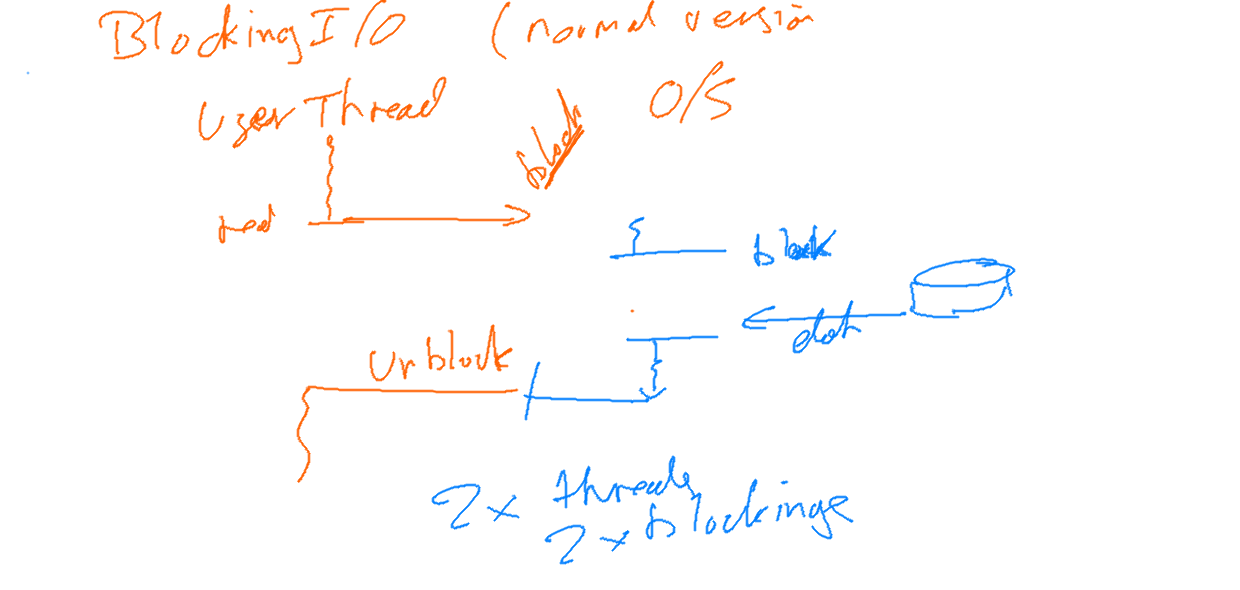 Blocking I/O (normal version
User Thread
O/S
block
read
block
data
Unblock
2x threads
2x blockings